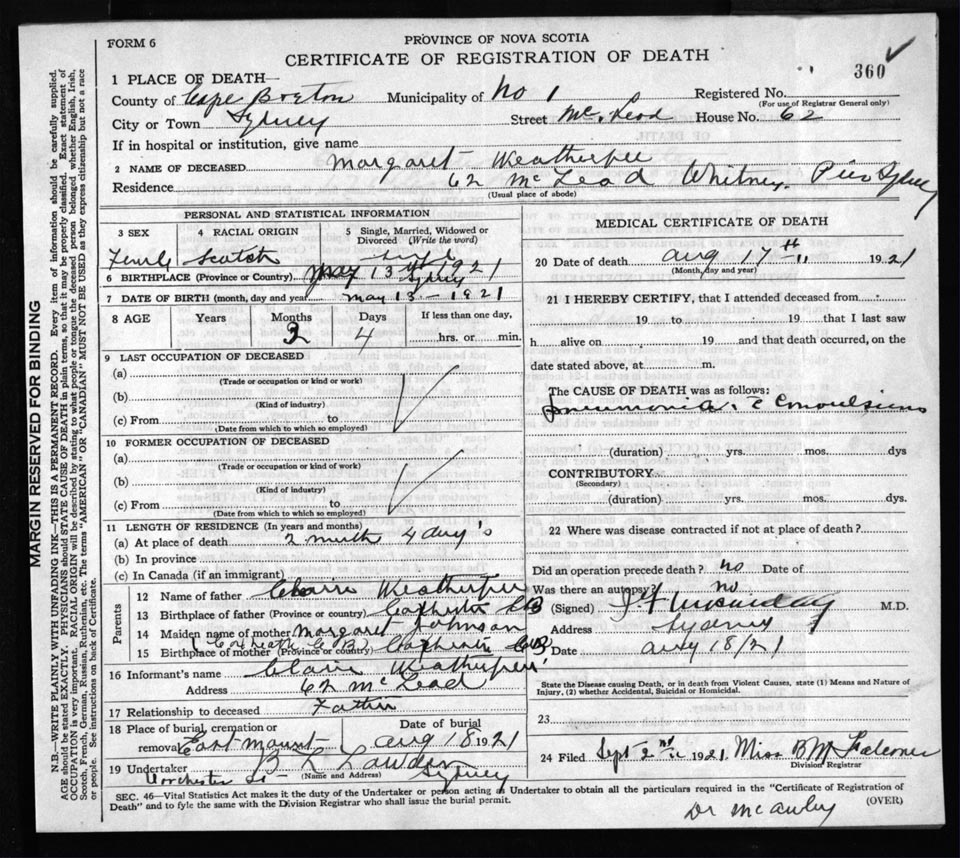 FORM 6
PROVINCE OF NOVA SCOTIA
CERTIFICATE OF REGISTRATION OF DEATH
360
1 PLACE OF DEATH—
County of Cape Breton Municipality of No 1 Registered No.
(For use of Registrar General only)
City or Town Sydney Street McLeod House No. 62
If in hospital or institution, give name
2 NAME OF DECEASED Margaret Weatherbee
Residence 62 McLead Whitney Pier Sydney
(Usual place of abode)
PERSONAL AND STATISTICAL INFORMATION
3 SEX 4 RACIAL ORIGIN 5 Single, Married, Widowed or Divorced (Write the word)
Female Scotch single
6 BIRTHPLACE (Province or Country) May 13 1921 Sydney
7 DATE OF BIRTH (month, day and year) May 13 – 1921
8 AGE Years Months Days If less than one day,
3 4 hrs. or min.
9 LAST OCCUPATION OF DECEASED
(a)
(Trade or occupation or kind or work)
(b)
(Kind of industry)
(c) From to
(Date from which to which so employed)
10 FORMER OCCUPATION OF DECEASED
(a)
(Trade or occupation or kind of work)
(b)
(Kind of industry)
(c) From to
(Date from which to which so employed)
11 LENGTH OF RESIDENCE (In years and months)
(a) At place of death 2 month 4 day's
(b) In province
(c) In Canada (if an immigrant)
Parents
12 Name of father Weatherbee
13 Birthplace of father (Province or country) CB
14 Maiden name of mother Margaret Johnson
15 Birthplace of mother (Province or country) CB
16 Informant's name Weatherbee
Address 62 McLead
17 Relationship to deceased Father
18 Place of burial, cremation or removal East Mount Date of burial Aug 18 1921
19 Undertaker B L Lawder
(Name and Address)
Dorchester St Sydney
MEDICAL CERTIFICATE OF DEATH
20 Date of death Aug 17th 1921
(Month, day and year)
21 I HEREBY CERTIFY, that I attended deceased from
19 to 19 that I last saw
h alive on 19 and that death occurred, on the
date stated above, at m.
The CAUSE OF DEATH was as follows:
pneumonia c̄ Convulsions
(duration) yrs. mos. dys
CONTRIBUTORY
(Secondary)
(duration) yrs. mos. dys.
22 Where was disease contracted if not at place of death?
Did an operation precede death? no Date of
Was there an autopsy? no
(Signed) M.D.
Address Sydney
Date Aug 18/21
State the Disease causing Death, or in death from Violent Causes, state (1) Means and Nature of
Injury, (2) whether Accidental, Suicidal or Homicidal.
23
24 Filed Sept 2nd 1921 Miss B M Falconer
Division Registrar
SEC. 46—Vital Statistics Act makes it the duty of the Undertaker or person acting as Undertaker to obtain all the particulars required in the "Certificate of Registration of
Death" and to fyle the same with the Division Registrar who shall issue the burial permit.
(OVER)
Dr McAuley
MARGIN RESERVED FOR BINDING
N.B.—WRITE PLAINLY WITH UNFADING INK—THIS IS A PERMANENT RECORD. Every item of information should be carefully supplied.
AGE should be stated EXACTLY. PHYSICIANS should STATE CAUSE OF DEATH in plain terms, so that it may be properly classified. Exact statement of
OCCUPATION is very important. RACIAL ORIGIN will be described by stating to what people or tongue the deceased person belonged whether English, Irish,
Scotch, French, German, Russian, Ruthenian, etc. The terms "AMERICAN" OR "CANADIAN" MUST NOT BE USED as they express citizenship but not a race
or people. See instructions on back of Certificate.